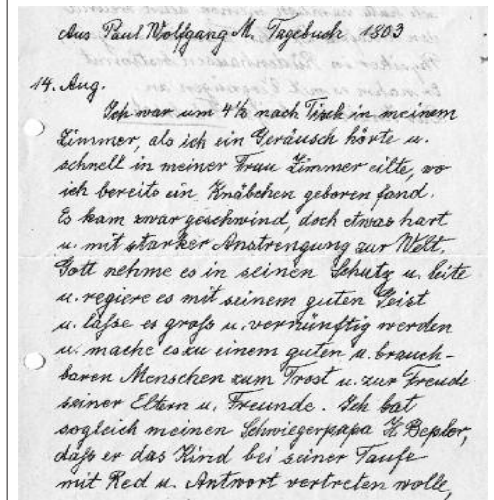 Aus Paul Wolfgang M. Tagebuch 1803
14. Aug.
Ich war um 4½ nach Tisch in meinem
Zimmer, als ich ein Geräusch hörte u.
schnell in meiner Frau Zimmer eilte, wo
ich bereits ein Knäbchen geboren fand.
Es kam zwar geschwind, doch etwas hart
u. mit starker Anstrengung zur Welt.
Gott nehme es in seinen Schutz u. leite
u. regiere es mit seinem guten Geist
u. laſse es groſs u. vernünftig werden
u. mache es zu einem guten u. brauch-
baren Menschen zum Trost u. zur Freude
seiner Eltern u. Freunde. Ich bat
sogleich meinen Schwiegerpapa H. Bepler,
daſs er das Kind bei seiner Taufe
mit Red u. Antwort vertreten wolle,